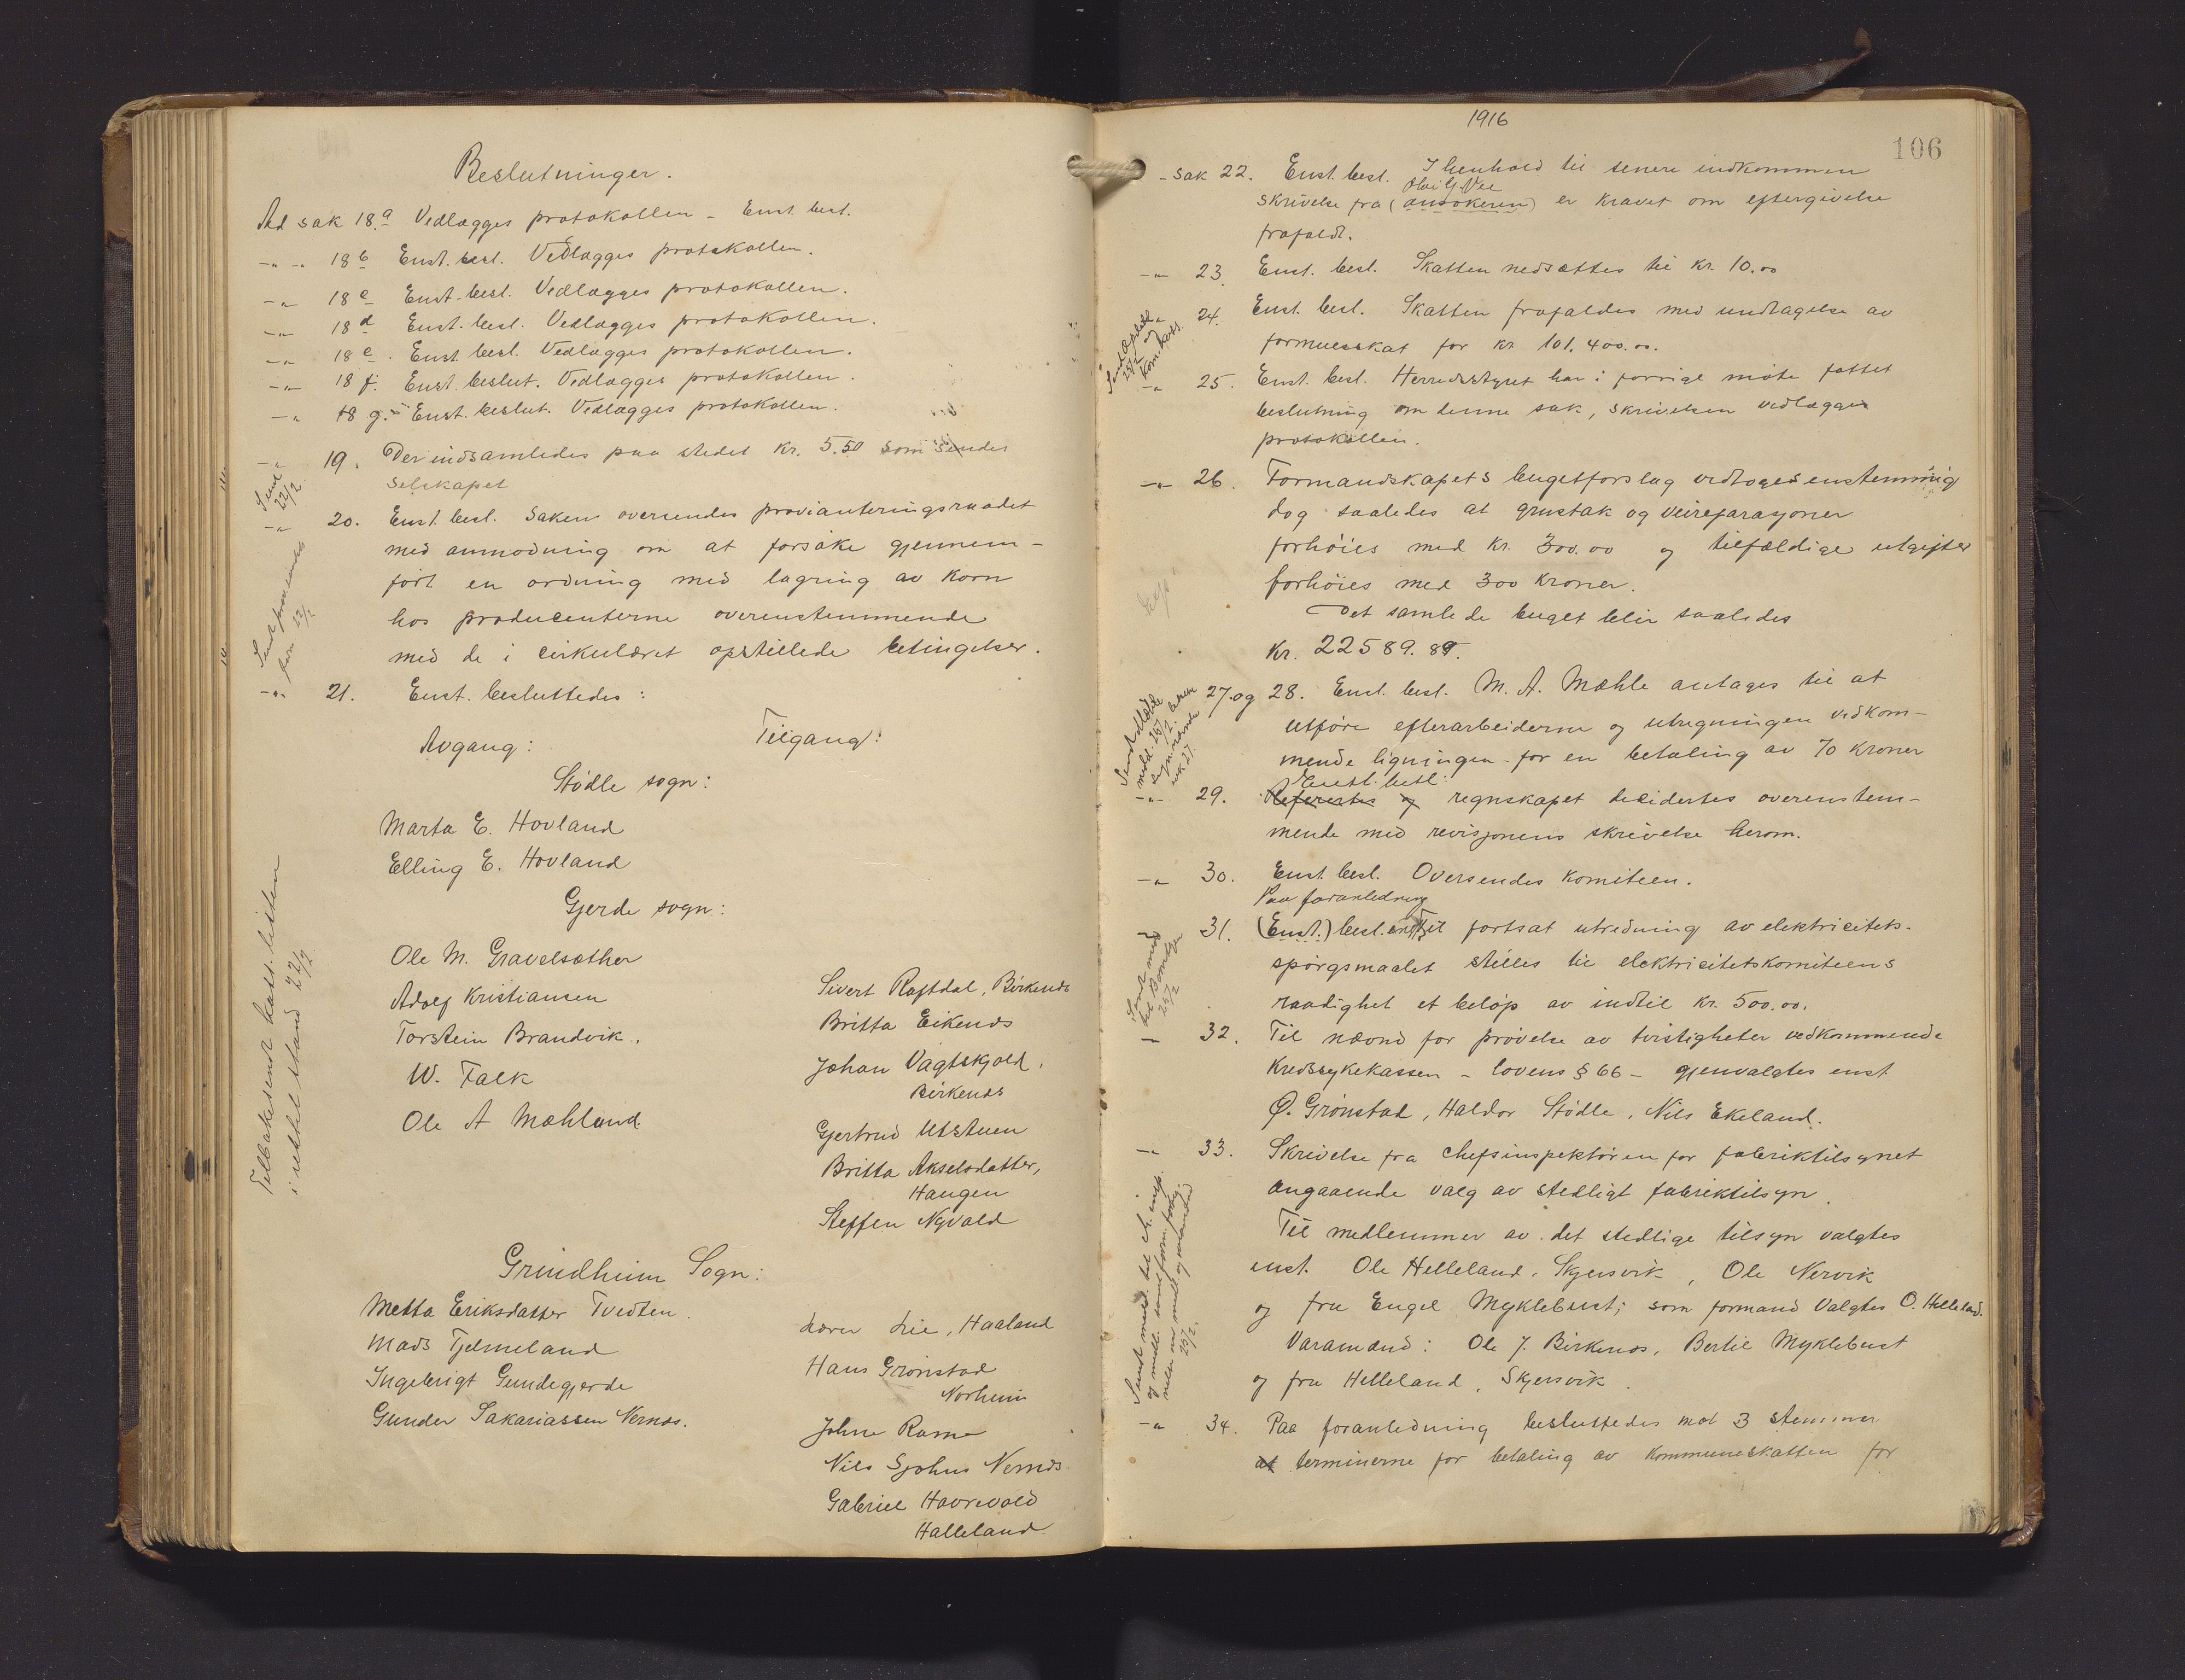 Beslutninger.
Ad sak 18 a Vedlægges protokollen - Enst. besl.
-"- -"- 18 b Enst. besl. Vedlægges protokollen.
-"- 18 c Enst. besl. Vedlægges protokollen.
-"- 18 d Enst. besl. Vedlægges protokollen.
-"- 18 e. Enst. besl. Vedlægges protokollen.
-"- 18 f. Enst. beslut. Vedlægges protokollen.
-"- 18 g. Enst. beslut. Vedlægges protokollen.
-"- 19. Der indsamledes paa stedet kr. 5.50 som sendes
selskapet
Sendt 22/2
-"- 20. Enst. besl. Saken oversendes provianteringsraadet
med anmodning om at forsøke gjennem-
ført en ordning med lagring av korn
hos producenterne overenstemmende
med de i cirkulæret opstillede betingelser.
-"- 21. Enst. besluttedes:
Avgang: Tilgang:
Stødle sogn:
Marta E. Hovland
Elling E. Hovland
Gjerde sogn:
Ole M. Gravelsæther
Adolf Kristiansen
Torstein Brandvik.
W. Falk
Ole A Mæhland.
Sivert Raftdal, Birkenes
Britta Eikenes
Johan Vagtskjold,
Birkenes
Gjertrud Utstuen
Britta Akselsdatter,
Haugen
Steffen Nyvold
Tilbakesendt kass. listen
i utkl. stand 22/2
Grindheim Sogn:
Metta Eriksdatter Tvedten.
Mads Tjelmeland
Ingebrigt Gundegjerde
Gunder Sakariassen Nernes.
Lærer Lie, Haaland
Hans Grønstad
Norheim
Johne Rame
Nils Sjohus Nernes
Gabriel Havrevold
Halleland
1916
106
- Sak 22. Enst. besl. I henhold til senere indkommen
skrivelse fra (ansøkeren) er kravet om eftergivelse
frafaldt.
-"- 23. Enst. besl. Skatten nedsættes til kr. 10.00
-"- 24. Enst. besl. Skatten frafaldes med undtagelse av
formuesskat for kr 101.400.00.
-"- 25. Enst. besl. Herredsstyret har i forrige møte fattet
beslutning om denne sak, skrivelsen vedlægges
protokollen.
-"- 26. Formandskapets bugetforslag vedtoges enstemmig
dog saaledes at grustak og veireparasjoner
forhøies med kr. 300.00 og tilfældige utgifter
forhøies med 300 kroner.
Det samlede buget blir saaledes
Kr. 22589.89.
27. og 28. Enst. besl. M. A. Mæhle antages til at
utføre efterarbeiderne og utregningen vedkom-
mende ligningen for en betaling av 70 kroner
Enst. besl.
-"- 29. Refereertes og regnskapet decidertes overenstem-
mende med revisjonens skrivelse herom.
-"- 30. Enst. besl. Oversendes komiteen.
Paa foranledning
-"- 31. (Enst.) besl. enst. Til fortsat utredning av elektricitets-
spørgsmaalet stilles til elektricitetskomiteens
raadighet et beløp av indtil kr. 500.00.
- 32. Til nævnd for prøvelse av tvistigheter vedkommende
Kredssykekassen - lovens § 66 - gjenvalgtes enst
Ø. Grønstad, Haldor Stødle, Nils Ekeland.
-"- 33. Skrivelse fra chefsinspektøren for fabriktilsynet
angaaende valg av stedligt fabriktilsyn.
Til medlemmer av det stedlige tilsyn valgtes
enst. Ole Helleland, Skjersvik, Ole Nervik
og fru Engel Myklebust; som formand valgtes O. Helleland.
Varamænd: Ole J. Birkenes, Bertil Myklebust
og fru Helleland, Skjersvik.
-"- 34. Paa foranledning besluttedes mot 3 stemmer
at terminerne for betaling av kommuneskatten for